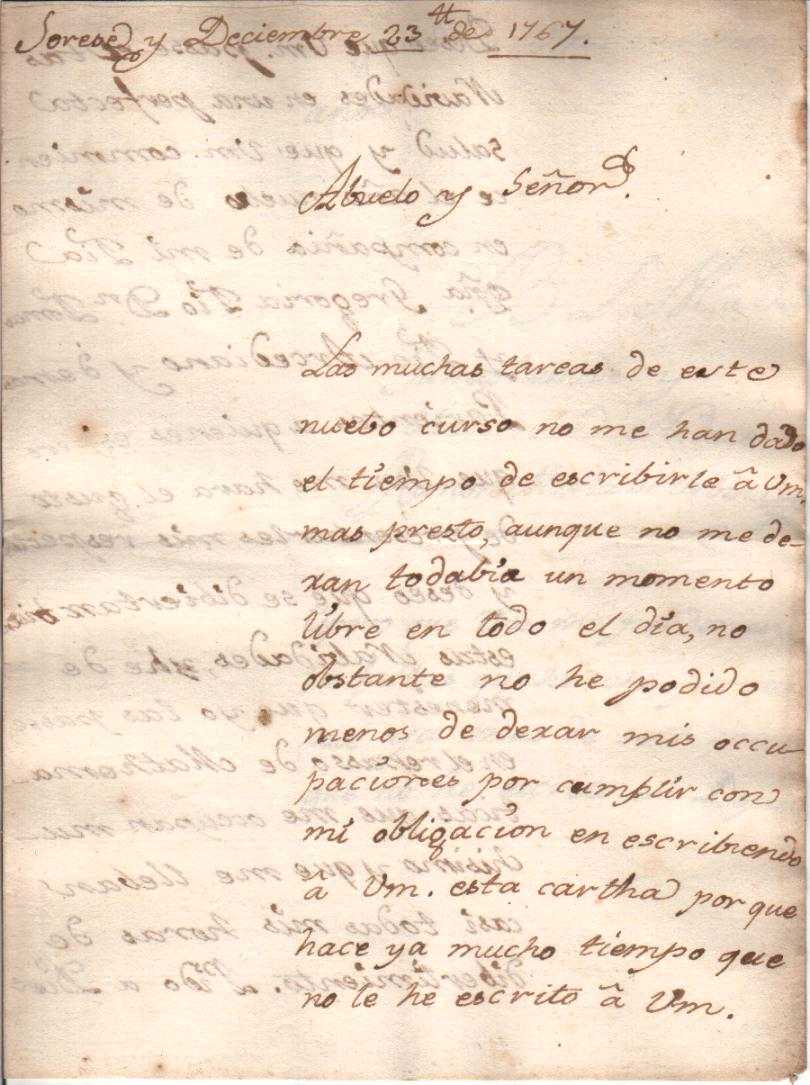 Sorese y Deciembre 23 de 1767.
Abuelo y Señor.
Las muchas tareas de este
nuebo curso no me han dado
el tiempo de escribirle â Vm.
mas presto, aunque no me de-
xan todabia un momento
libre en todo el dia, no
obstante no he podido
menos de dexar mis occu-
paciones por cumplir con
mi obligacion en escribiendo
à Vm. esta cartha porque
hace ya mucho tiempo que
no le he escrito â Vm.